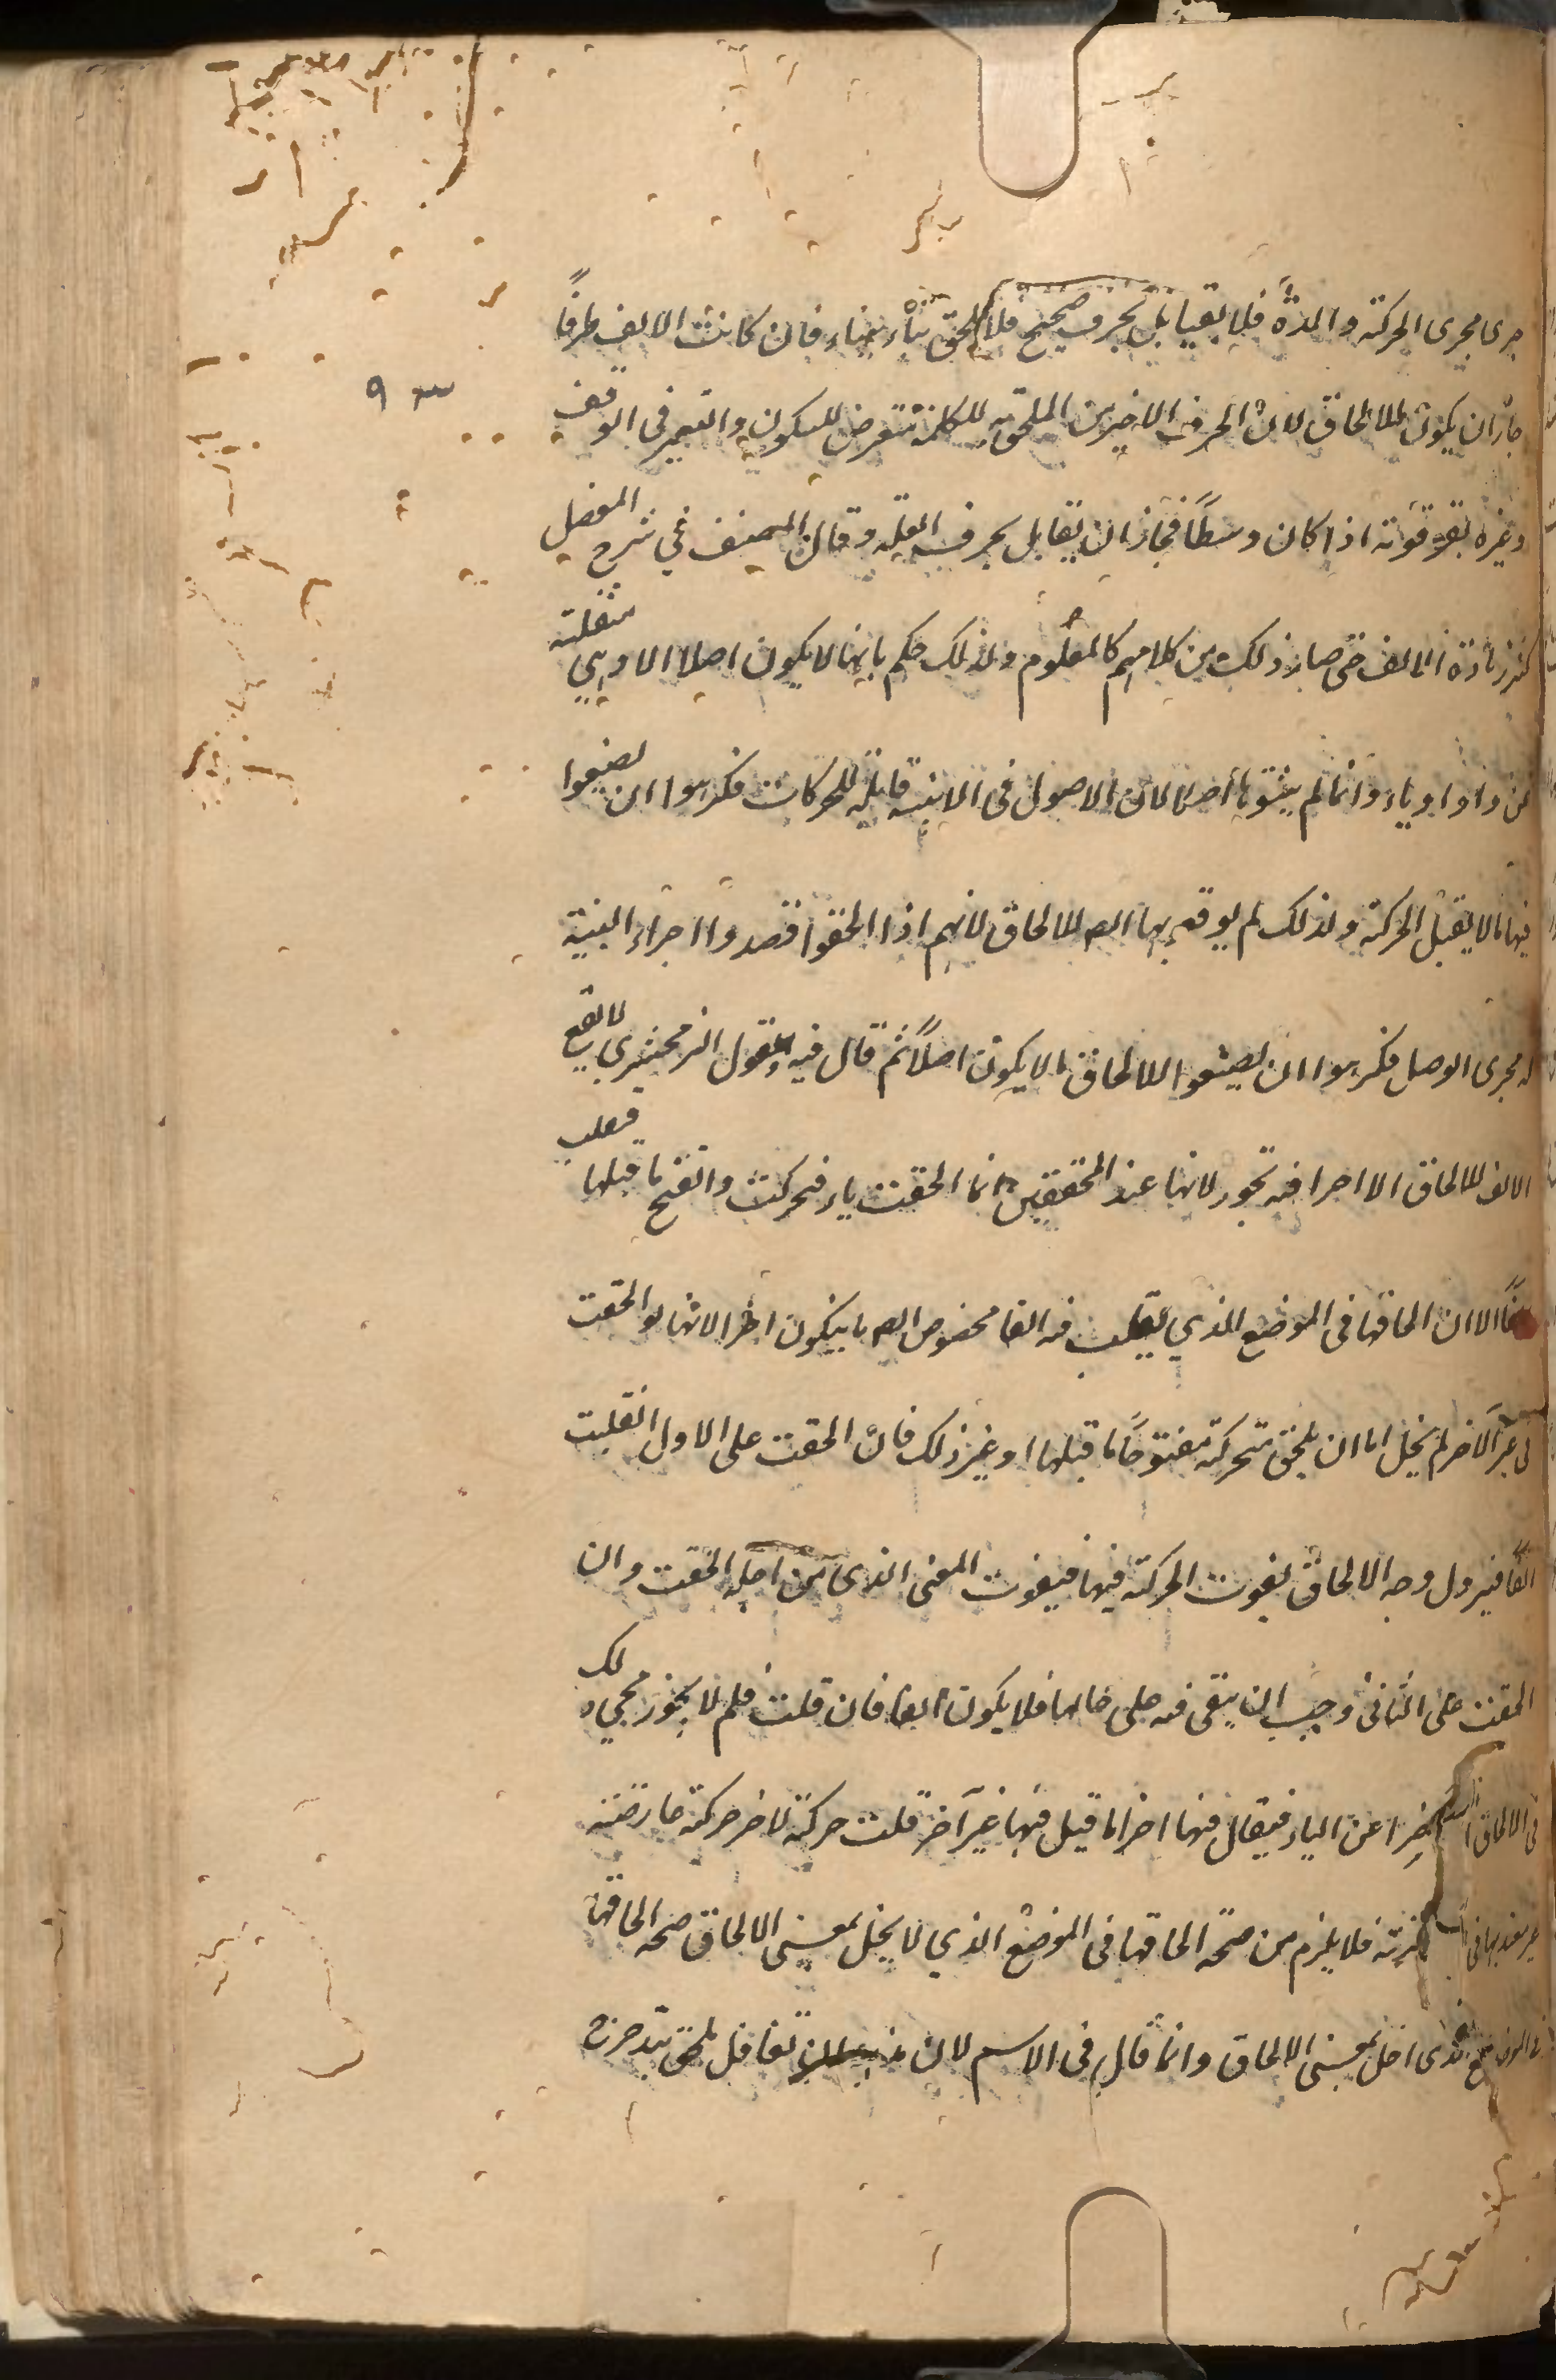 جرى مجرى الحركة والمدة فلا يقابل بحرف صحيح فلا يلحق بناء ببناء فان كانت الالف طرفًا
جاز ان يكون للالحاق لان الحرف الاخير من الملحق به للكلمة تتعرض للسكون والتغيير فى الوقف
وغيره بقو قوته اذا كان وسطًا فجاز ان يقابل بحرف العلة وقال المصنف في شرح المفصل
كثر زيادة الالف حتى صار ذلك من كلامهم كالمعلوم ولذلك حكم بانها لا يكون اصلا الا وهي منقلبة
عن واو او ياء وانما لم يثبتوها أصلا لان الاصول فى الابنية قابلة للحركات فكرهوا ان يضعوا
فيها ما لا يقبل الحركة ولذلك لم يوقع بها الص للالحاق لانهم اذا الحقوا قصدوا اجراء البنية
له مجرى الوصل فكرهوا ان يضعوا للالحاق ما لا يكون اصلًا ثم قال فيه وقول الزمخشري لا تقع
الالف للالحاق الا اخرا فيه تجوز لانها عند المحققين انما الحقت ياء فتحركت وانفتح ما قبلها فقلبت
الفًا الا ان الحاقها فى الموضع الذي تقلب فيه الفا مخصوص الص بان يكون اخرا لانها لو الحقت
فى غير الآخر لم يخل اما ان يلحق متحركة مفتوحًا ما قبلها او غير ذلك فان الحقت على الاول انقلبت
الفًا فيزول وجه الالحاق لفوت الحركة فيها فيفوت المعنى الذى من اجله الحقت وان
الحقت على الثانى وجب ان يبقى فيه على حالها فلا يكون الفا فان قلت فلم لا يجوز مجيء لك
فى الالحاق اخرا عن الياء فيقال فيها اخرا ما قيل فيها غير آخر قلت حركة لاخر حركة عارضة
غير معتد بها فى فلا يلزم من صحة الحاقها فى الموضع الذي لا يخل بمعنى الالحاق صحة الحاقها
فى الموضع الذى اخل بمعنى الالحاق وانما قال فى الاسم لان تغافل ملحق بتدحرج